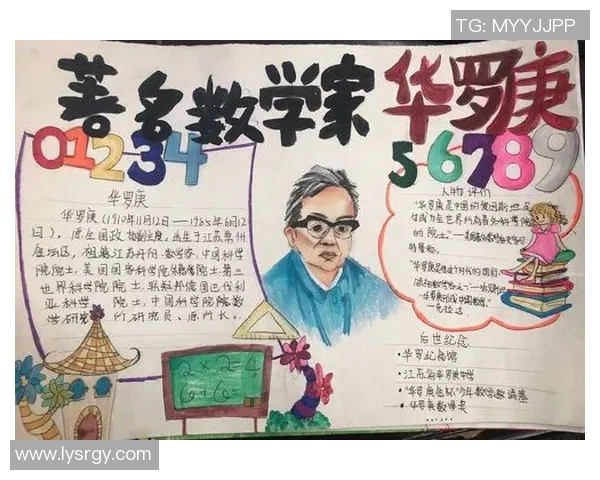 TG: MYYJJPP
著名数学家 华罗庚
01234
56789
华罗庚
华罗庚(1910年11月12日——1985年6月12
日),原全国政协副主席。出生于江苏常州
金坛区,祖籍江苏丹阳。数学家,中国科学
院院士,美国国家科学院外籍院士,第三
世界科学院院士,联邦德国巴伐利
亚科学院院士,中国科学院数
学研究所研究员、原所长。
人物评价
“华罗庚是中国的爱因斯坦,足
够成为全世界所有著名科学院
的院士。”
2×2=4
6+6=
后世纪念
·华罗庚纪念馆
·江苏省华罗庚中学
·“华罗庚金杯”少年数学邀请赛
·华罗庚数学奖
www.lysrgy.com